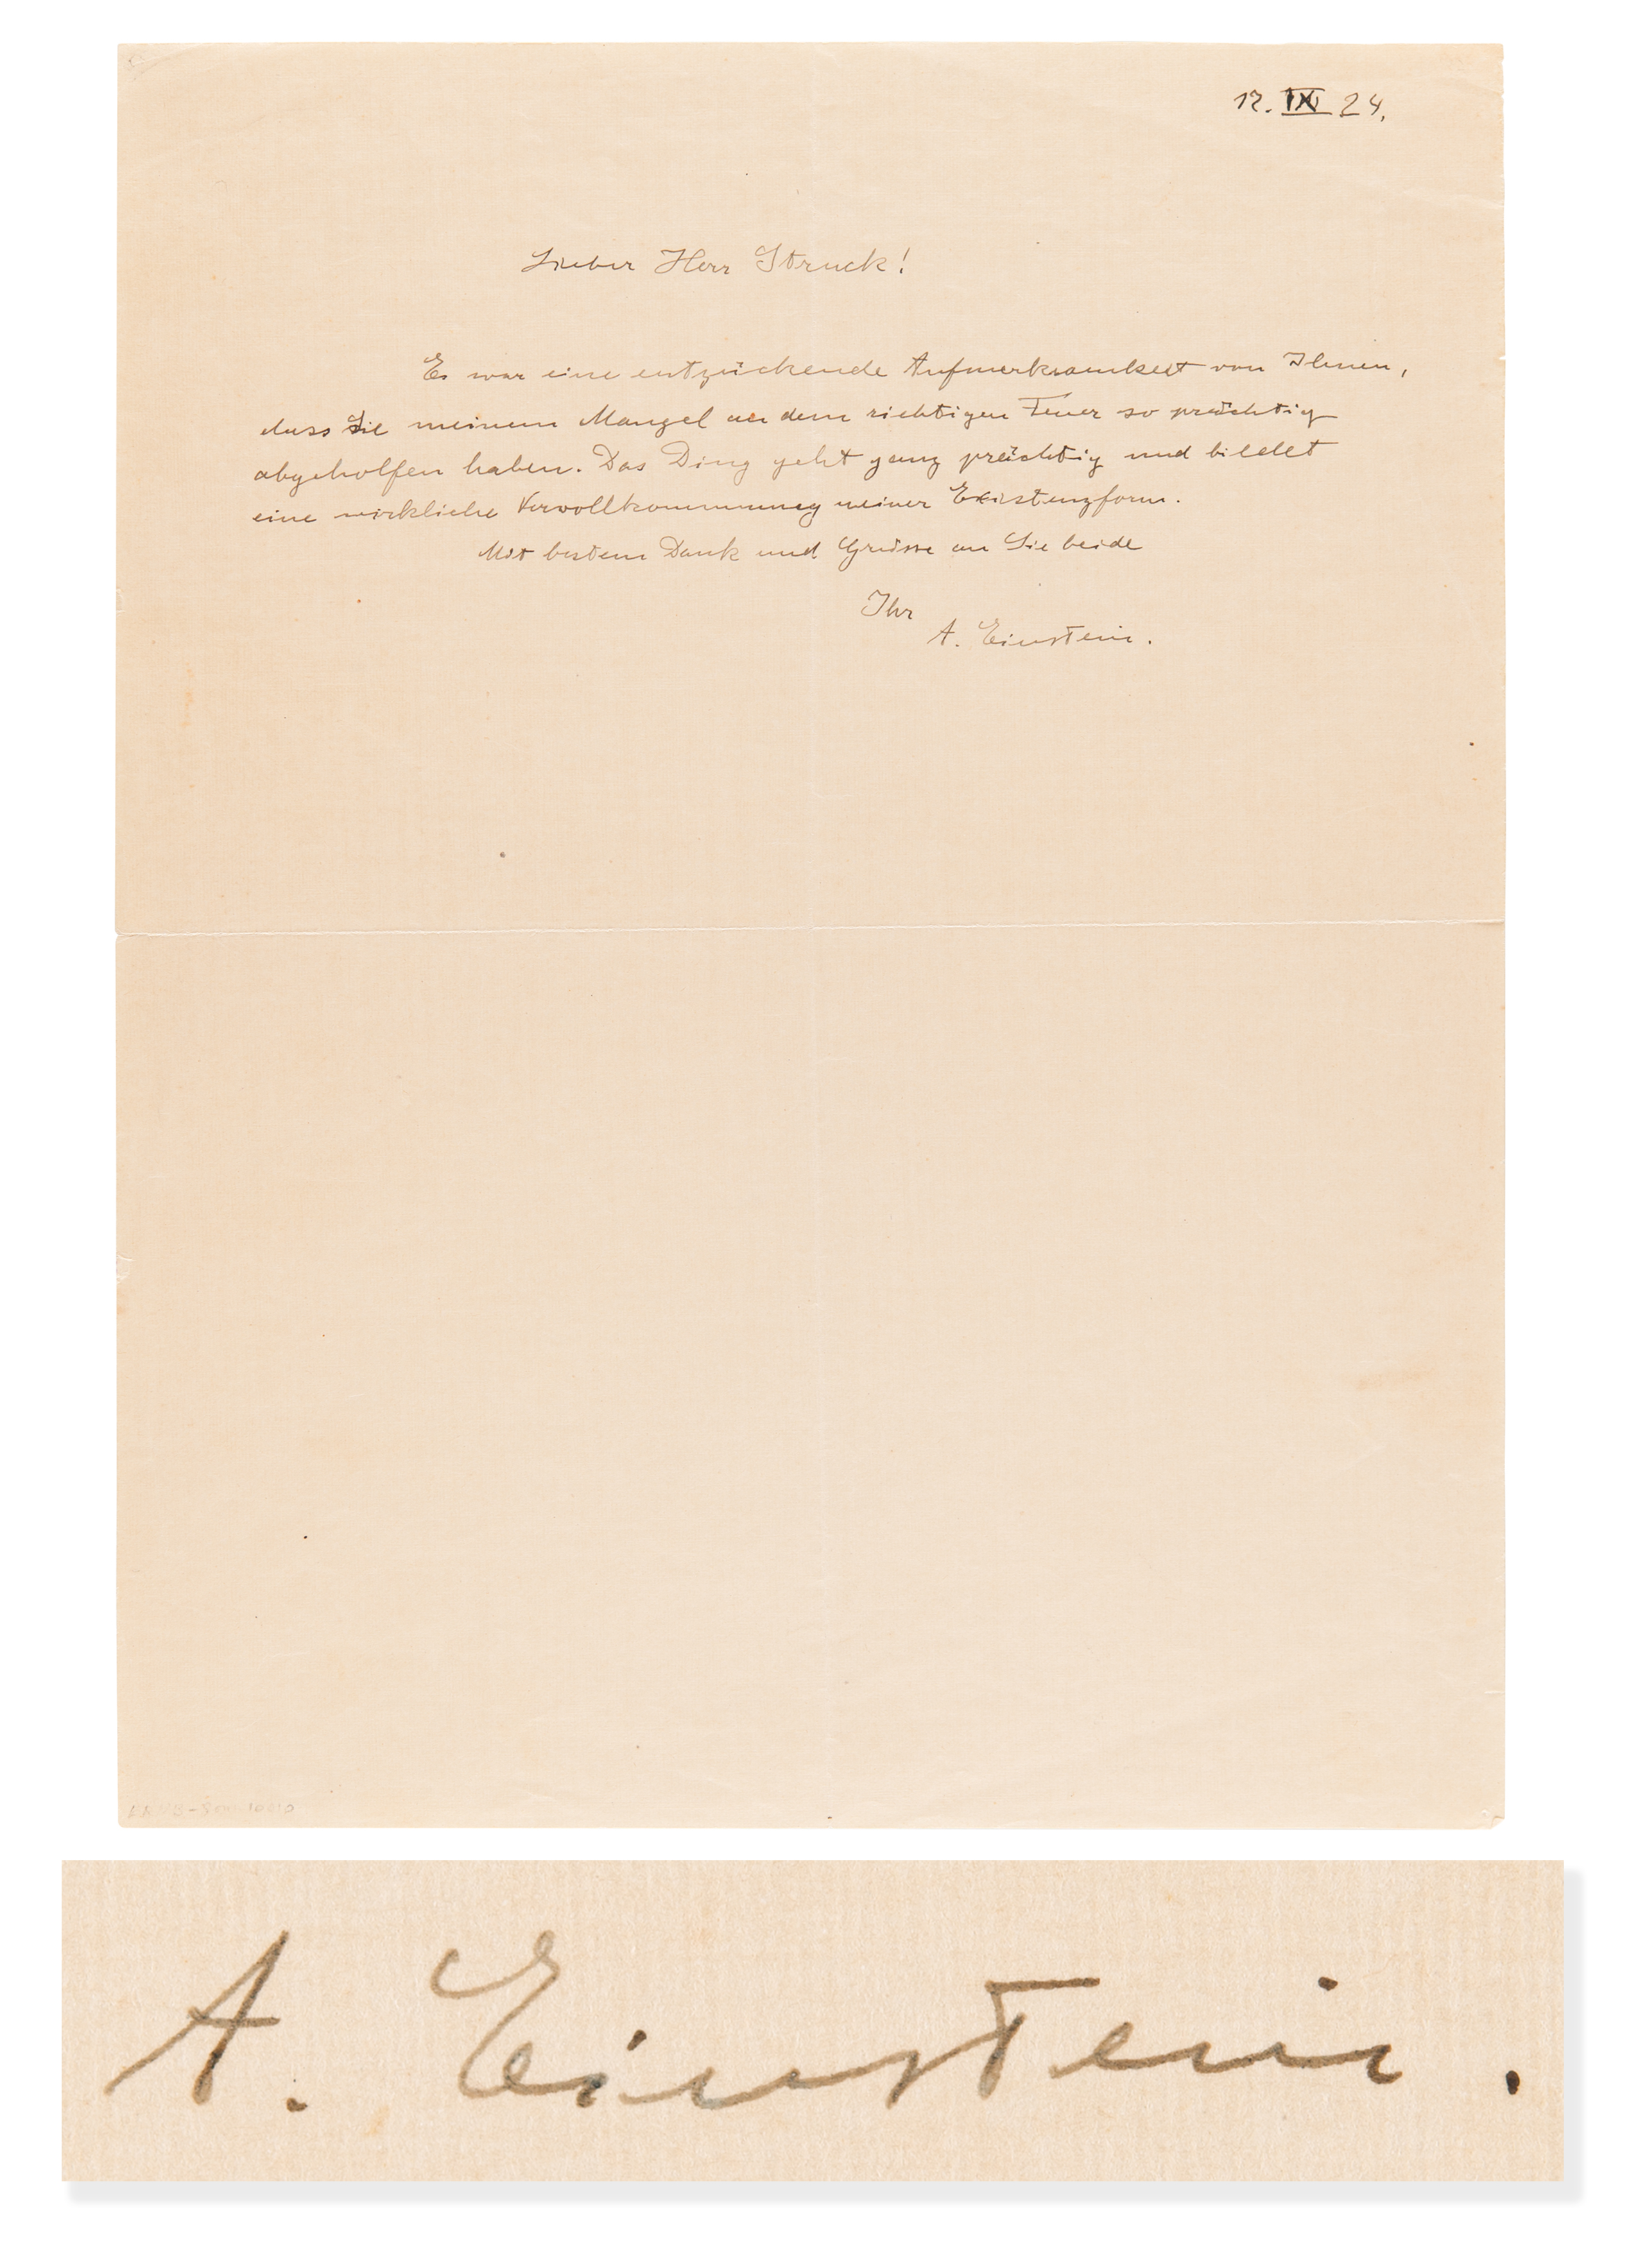 12. IX 24.
Lieber Herr Struck!
Es war eine entzückende Aufmerksamkeit von Ihnen,
dass Sie meinem Mangel an dem richtigen Feuer so prächtig
abgeholfen haben. Das Ding geht ganz prächtig und bildet
eine wirkliche Vervollkommnung meiner Existenzform.
Mit bestem Dank und Grüsse an Sie beide
Ihr
A. Einstein.
A. Einstein.